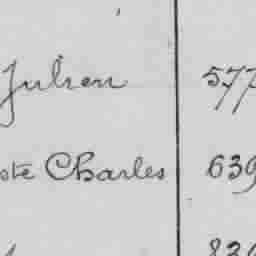 Julien 577
ste Charles 639
839